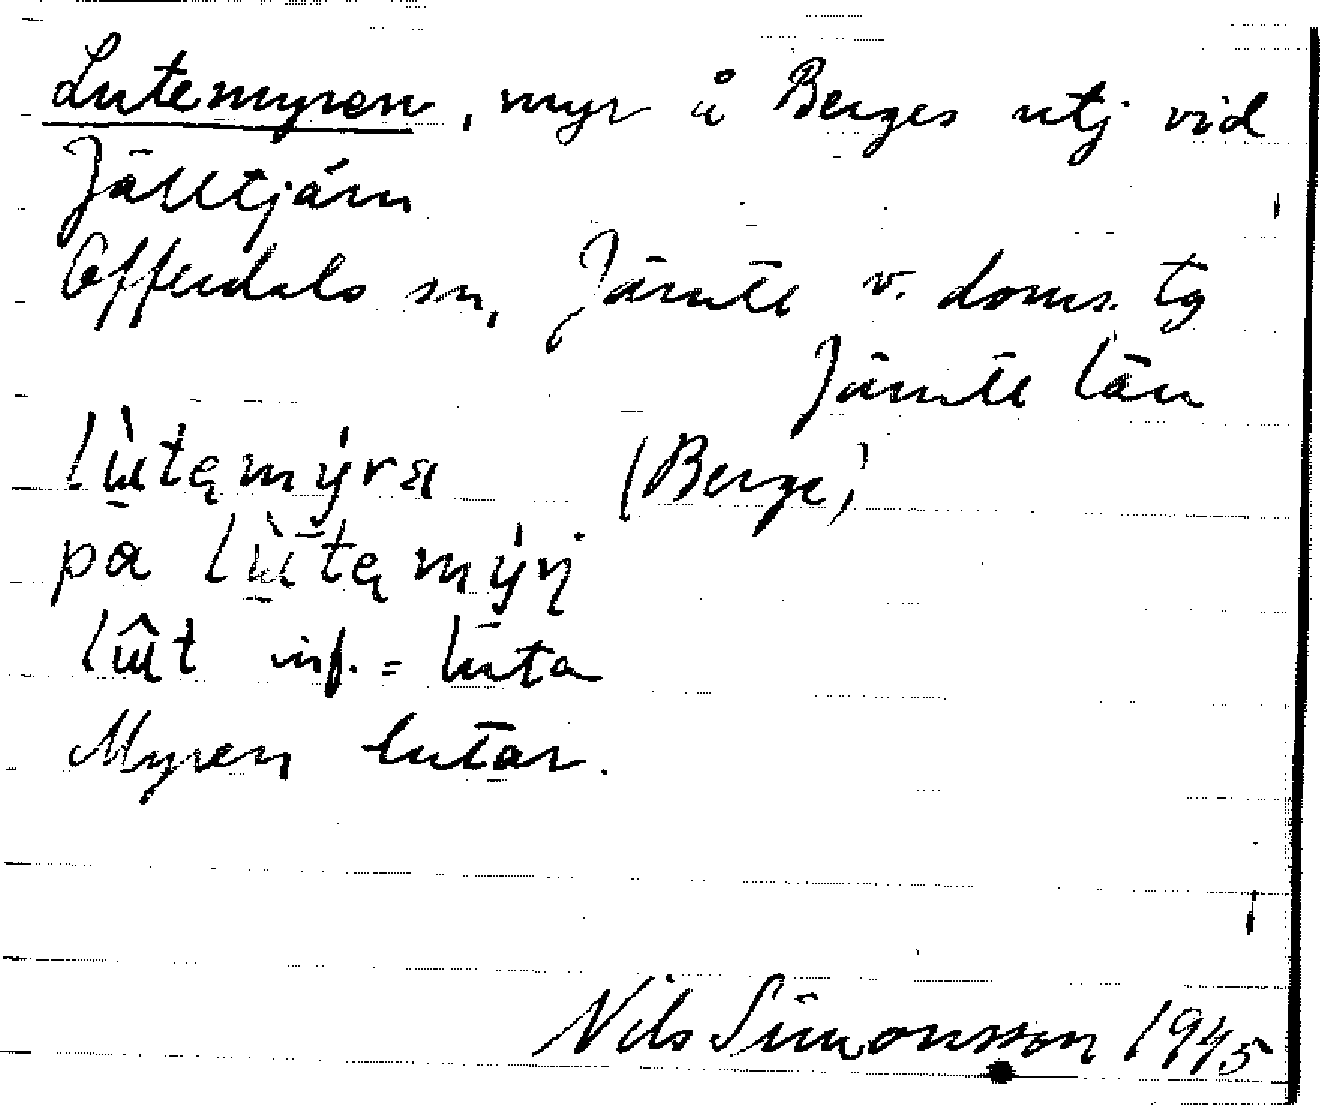 Lutemyren, myr å Berges utj vid
Jälltjärn
Offerdals sn, Jämtl v. doms. tg
Jämtl län
lɯ̀tęmýra (Berge)
pa lɯ̀tęmýn
lɯ̂t inf. = luta
Myren lutar.
Nils Simonsson 1945